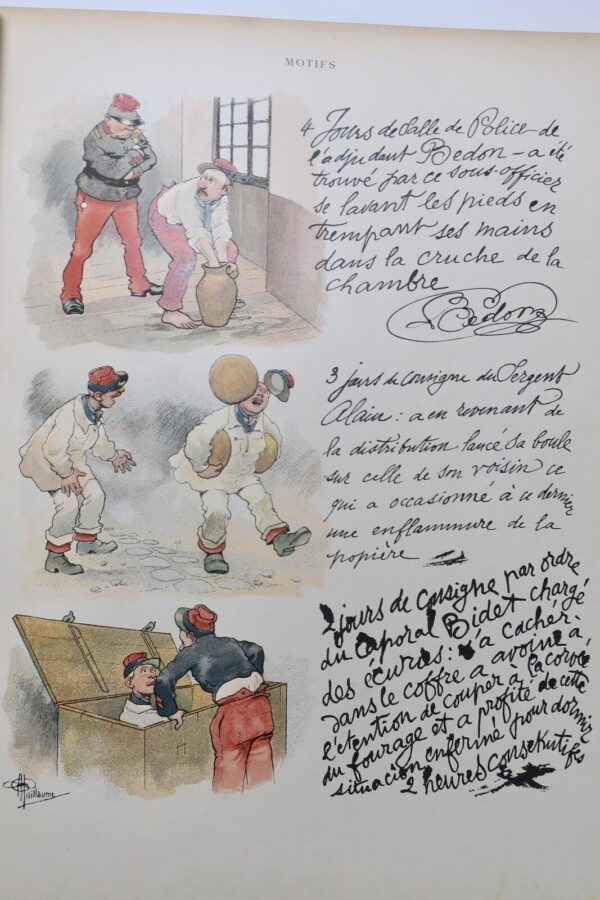 MOTIFS
4 Jours de Salle de Police de
l'adjudant Bedon – a été
trouvé par ce sous-officier
se lavant les pieds en
trempant ses mains
dans la cruche de la
chambre
Bédon
3 jours de consigne du Sergent
Alain : a en revenant de
la distribution lancé sa boule
sur celle de son voisin ce
qui a occasionné à ce dernier
une enflammure de la
popière
2 jours de consigne par ordre
du caporal Bidet chargé
des écuries : s'a cachér
dans le coffre a avoine a
l'etention de couper à la corvée
du fourage et a profité de cette
situacion enfermé pour dormir
2 heures consekutifs
A Guillaume